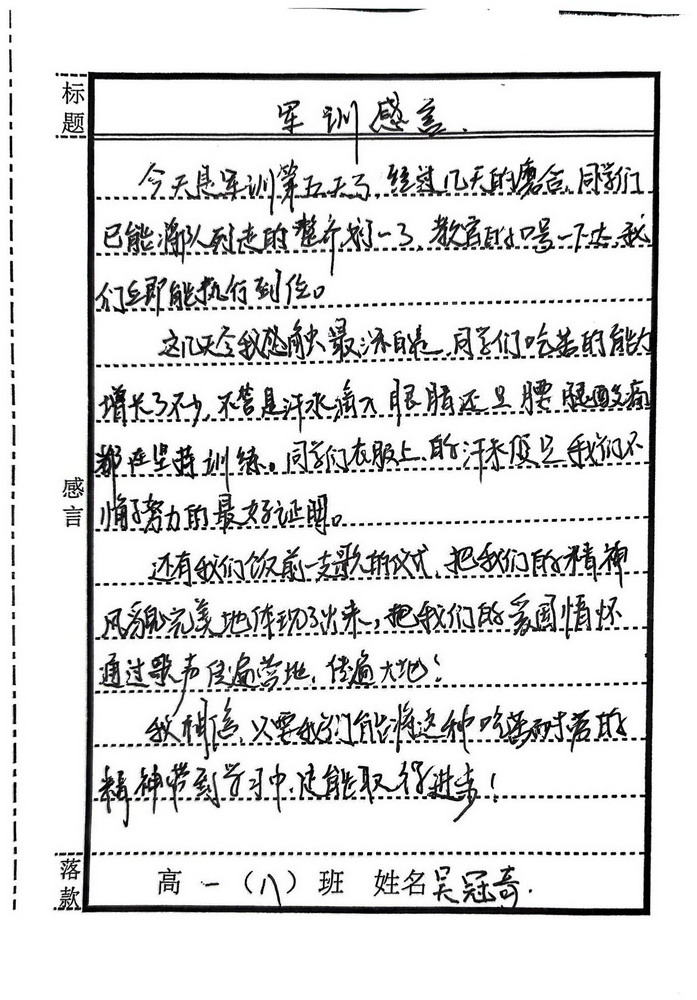 标题
军训感言.
今天是军训第五天了，经过几天的磨合，同学们
已能将队列走的整齐划一了，教官的口号一下达，我
们立即能执行到位。
这几天令我感触最深的是，同学们吃苦的能力
增长了不少，不管是汗水滴入眼睛还是腰腿酸痛
都在坚持训练。同学们衣服上的汗渍便是我们不
懈努力的最好证明。
还有我们饭前一支歌的仪式，把我们的精神
风貌完美地体现了出来，把我们的爱国情怀
通过歌声传遍营地，传遍大地！
我相信，只要我们能将这种吃苦耐劳的
精神带到学习中，定能取得进步！
感言
落款
高一（八）班 姓名吴冠奇.